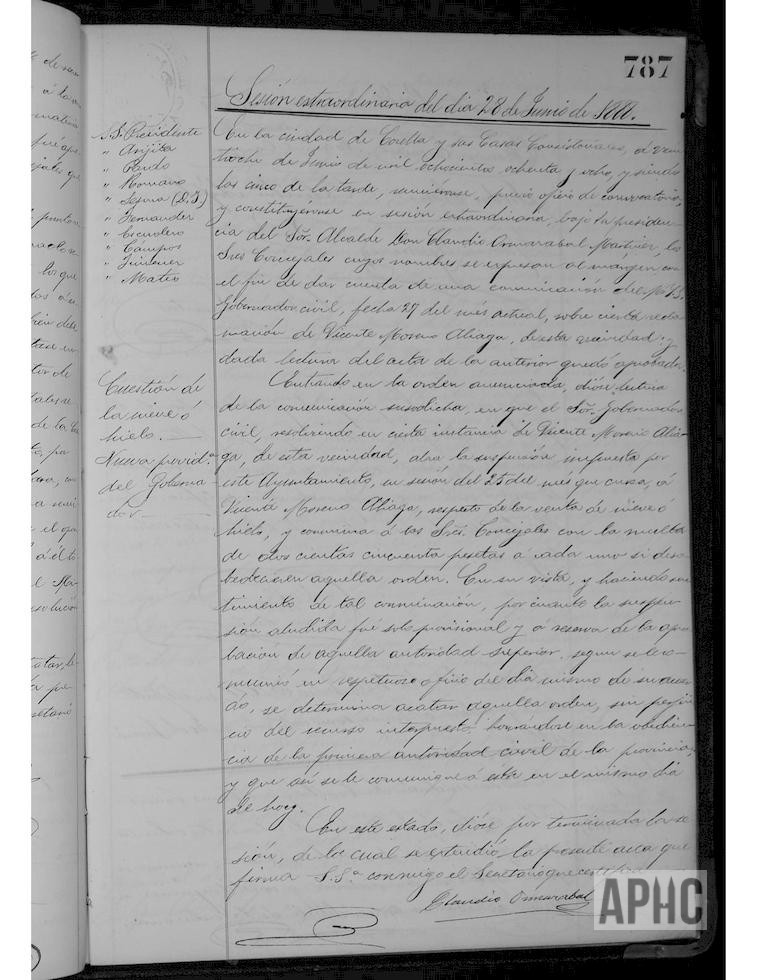 787
Sesión extraordinaria del dia 28 de Junio de 1888.
S.S. Presidente
" Arijita
" Pardo
" Romano
" Sesma (D. J)
" Fernandez
" Escudero
" Campos
" Jimenez
" Mateo
En la ciudad de Corella y sus Casas Consistoriales, á vein
tiocho de Junio de mil ochocientos ochenta y ocho, y siendo
las cinco de la tarde, reuniéronse, previo oficio de convocatoria,
y constituyéronse en sesión extraordinaria, bajo la presiden-
cia del Sōr. Alcalde Don Claudio los
Sres Concejales cuyos nombres se expresan al márgen con
el fin de dar cuenta de una comunicación del M. I. S.
Gobernador civil, fecha 27 del més actual, sobre cierta recla
mación de Vicente Moreno Aliaga, de esta vecindad; y
dada lectura del acta de la anterior quedó aprobada.
Cuestión de
la nieve ó
hielo.
Nueva provid.ª
del Goberna
dor
Entrando en la orden anunciada, dióse lectura
de la comunicación susodicha, en que el Sōr. Gobernador
civil, resolviendo en cierta instancia de Vicente Moreno Alia-
ga, de esta vecindad, alza la suspensión impuesta por
este Ayuntamiento, en sesión del 25 del mes que cursa, á
Vicente Moreno Aliaga, respecto de la venta de nieve ó
hielo, y conmina á los Sres. Concejales con la multa
de dos cientas cincuenta pesetas á cada uno si deso
bedeciesen aquella orden. En su vista, y haciendo
timiento de tal conminación, por cuanto la suspen
sión aludida fué solo provisional y á reserva de la apro
bacion de aquella autoridad superior, segun se le co-
municó en respetuoso oficio del dia mismo de su acuer
do, se determina acatar aquella orden, sin perjui
cio del recurso interpuesto honrándose en la obedien
cia de la primera autoridad civil de la provincia,
y que asi se le comunique á esta en el mismo dia
de hoy.
En este estado, dióse por terminada la se
sión, de la cual se extendió la presente acta que
firma S.Sª conmigo el Secretario que certifico
Claudio
APHC